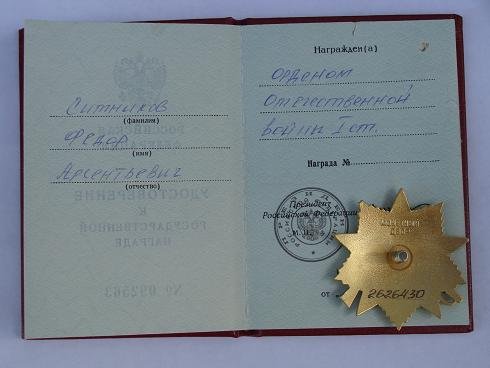 Ситников
(фамилия)
Федор
(имя)
Арсентьевич
(отчество)
Награжден(а)
орденом
Отечественной
войны I ст.
Награда №
Президент
Российской Федерации
М. П.
от
МОНЕТНЫЙ
ДВОР
2626430
РОССИЙСКАЯ
УДОСТОВЕРЕНИЕ
К
ГОСУДАРСТВЕННОЙ
НАГРАДЕ
№ 092563